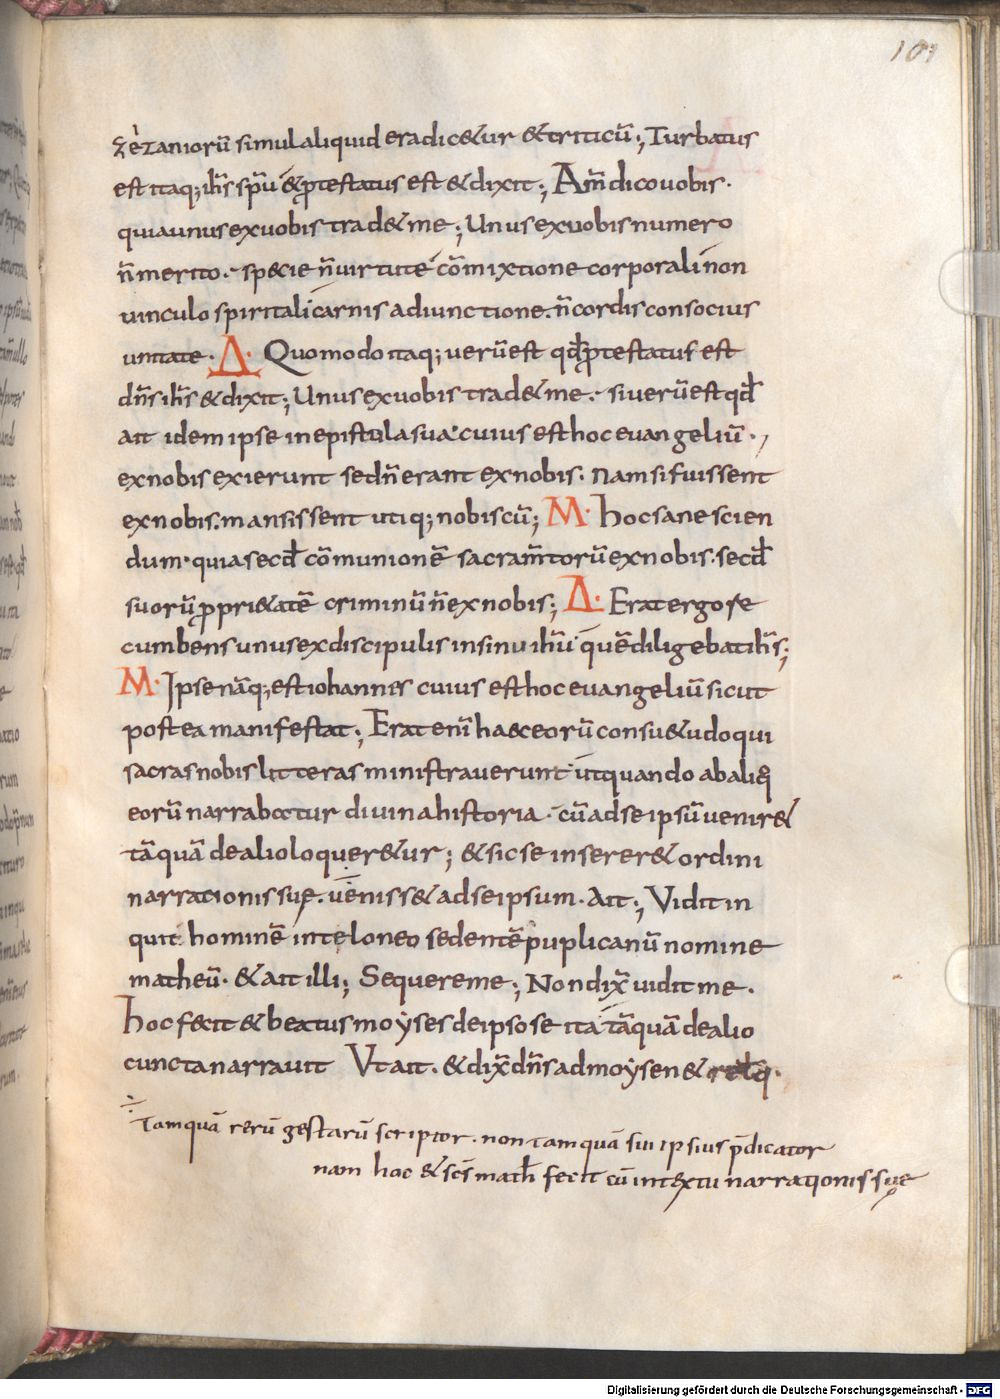 101
zèzanioru᷈ simul aliquid eradic&ur &triticu᷈; Turbatus
est itaq; ih̅s sp̅u &ꝓtestatus est & dixit; Am̅ dico uobis.
quia unus exuobis trad& me; Unus exuobis numero
n̅ merito. specie n̅ uirtute co̅mixtione corporali non
uinculo spiritali carnis adiunctione. n̅ cordis consocius
unitate. Δ. Quomodo itaq; ueru̅ est qd̅ ꝓtestatus est
dn̅s ih̅s & dixit; Unus exuobis trad& me. si ueru̅ est qd̅
ait idem ipse in epistola sua cuius est hoc euangeliu̅.,
exnobis exierunt sed n̅ erant exnobis. Nam si fuissent
exnobis. mansissent utiq; nobiscu̅; M. hoc sane scien
dum. quia secd̅ co̅munione̅ sacram̅toru̅ exnobis. secd̅
suoru̅ ꝓpri&ate̅ criminu̅ n̅ exnobis; Δ. Erat ergo re
cumbens unus ex discipulis in sinu ih̅u que̅ diligebat ih̅s;
M. Ipse na̅q; est iohannes cuius est hoc euangeliu̅ sicut
postea manifestat; Erat eni̅ haec eoru̅ consu&udo qui
sacras nobis litteras ministrauerunt ut quando ab aliq̅
eoru̅ narrabatur diuina historia. cu̅ ad se ipsu̅ uenir&
ta̅qua̅ de alio loquer&ur; & sic se inserer& ordini
narrationis suę. ueniss& ad se ipsum. Ait; Vidit in
quit homine̅ in teloneo sedente̅ puplicanu̅ nomine
matheu̅. & ait illi; Sequere me; Non dix̅ uidit me.
hoc fecit & beatus moẏses de ipso se ita ta̅qua̅ de alio
cuncta narrauit Vt ait. & dix̅ dn̅s ad moẏsen & relq̅.
÷ Tamqua̅ reru̅ gestaru̅ scriptor. non tamqua̅ sui ipsius p̅dicator
nam hoc & sc̅s math̅ fecit cu̅ in textu narrationis suę
Digitalisierung gefördert durch die Deutsche Forschungsgemeinschaft - DFG